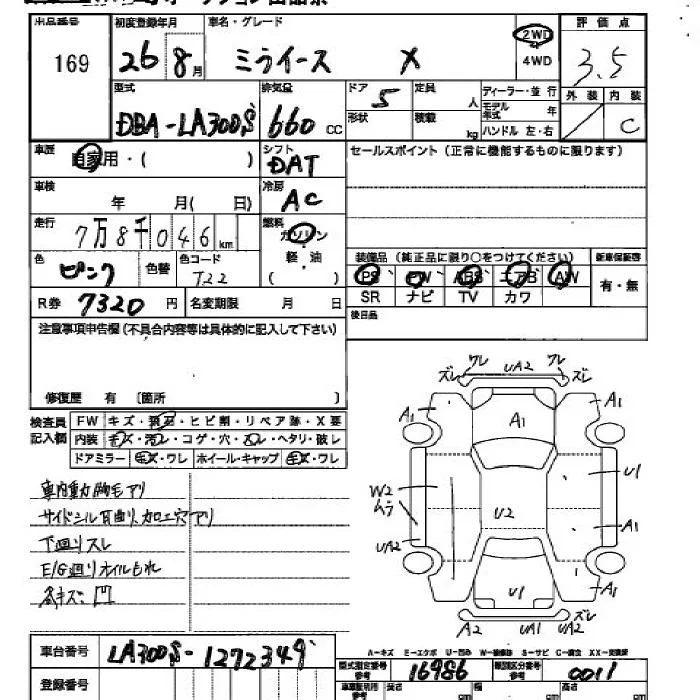 出品番号 初度登録年月 車名・グレード 2WD 評価点
169 26 8月 ミライース X 4WD 3.5
型式 排気量 ドア 5 定員 人 ディーラー・並行 外装 内装
モデル年式 年
DBA-LA300S 660cc 形状 積載 kg ハンドル 左・右 C
車歴 自家用・( ) シフト セールスポイント(正常に機能するものに限ります)
DAT
車検 年 月( 日) 冷房 AC
走行 7万8千046km 燃料 ガソリン
色 ピンク 色替 色コード T22 軽・油 ( ) 装備品(純正品に限り○をつけてください) 新車保証書
PS PW ABS エアB AW 有・無
R券 7320円 名変期限 月 日 SR ナビ TV カワ
注意事項申告欄(不具合内容等は具体的に記入して下さい) 後日品
修復歴 有 〔箇所 〕
検査員記入欄 FW キズ・飛石・ヒビ割・リペア跡・X要
内装 キズ・汚レ・コゲ・穴・スレ・ヘタリ・破レ
ドアミラー キズ・ワレ ホイール・キャップ キズ・ワレ
ワレ ズレ UA2 ワレ ズレ
A1 A1 A1
U1
W2 ムラ U2 A1
UA2
U1 A1
A2 UA1 UA2 ズレ
車内動物毛アリ
サイドシル耳曲り、加工穴アリ
下廻りスレ
E/G廻りオイルもれ
各キズ凹
車台番号 LA300S-1272349
A-キズ E-エクボ U-凹み W-修理跡 S-サビ C-腐食 XX-交換済
型式指定番号 参考 16986 類別区分番号 参考 0011
登録番号 長さ cm 幅 cm 高さ cm